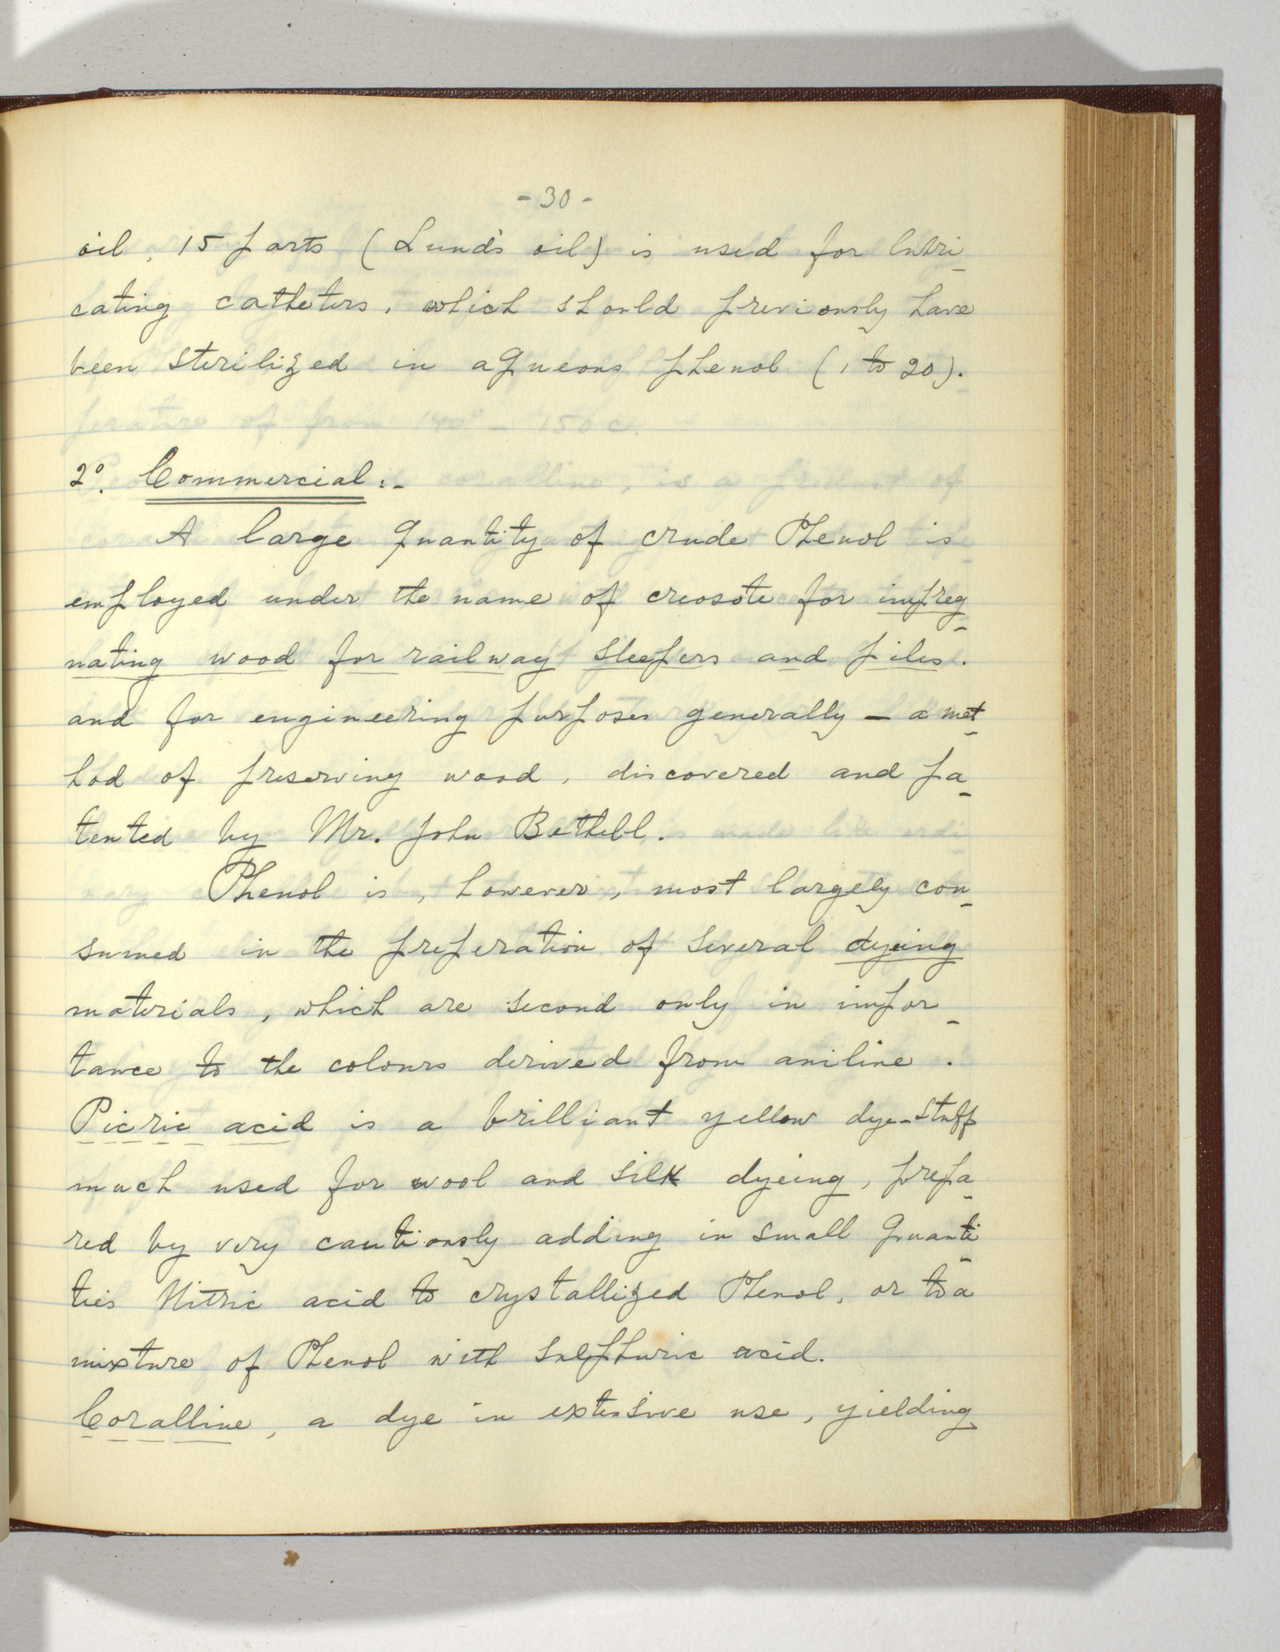 - 30 -
oil, 15 parts (Lund's oil) is used for lubri-
cating catheters, which should previously have
been sterilized in aqueous phenol (1 to 20).
2º. Commercial :-
A large quantity of crude Phenol is
employed under the name of creosote for impreg-
nating wood for railway sleepers and piles.
and for engineering purposes generally - a met-
hod of preserving wood, discovered and pa-
tented by Mr. John Bethell.
Phenol is, however, most largely con-
sumed in the preperation of several dyeing
materials, which are second only in impor-
tance to the colours derived from aniline.
Picric acid is a brilliant yellow dye-stuff
much used for wool and silk dyeing, prepa-
red by very cautiously adding in small quanti-
ties Nitric acid to crystallized Phenol, or to a
mixture of Phenol with sulphuric acid.
Coralline, a dye in extensive use, yielding